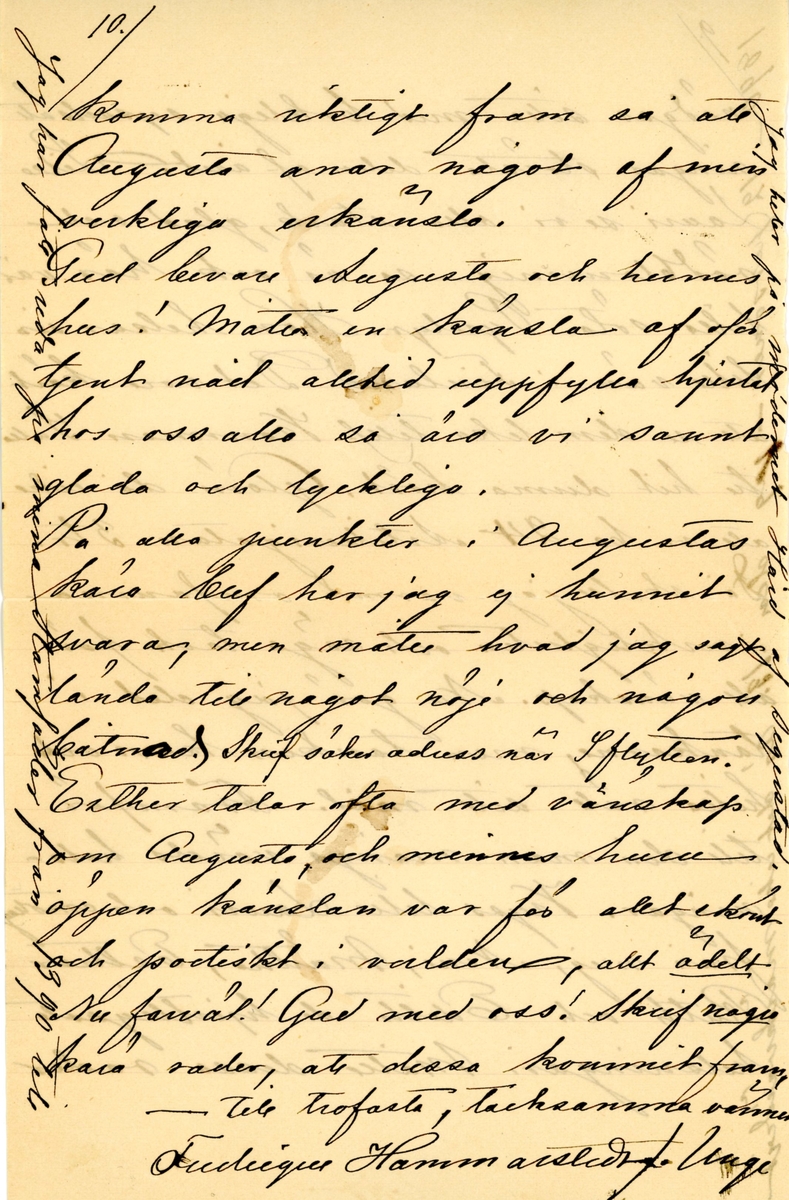 10.
komma riktigt fram så att
Augusta anar något af min
verkliga erkänsla.
Gud bevare Augusta och hennes
hus! Måtte en känsla af oför
tjent nåd alltid uppfylla hjertat
hos oss alla så äro vi sannt
glada och lyckliga.
På alla punkter i Augustas
kära bref har jag ej hunnit
svara, men måtte hvad jag sagt
lända till något nöje och någon
båtnad. Skrif säker adress när I flytten.
Esther talar ofta med vänskap
om Augusta, och minnes huru
öppen känslan var för allt skönt
och poetiskt i verlden, allt ädelt
Nu farväl! Gud med oss! Skrif några
kära rader, att dessa kommit fram,
— till trofasta, tacksamma vännen
Fredrique Hammarstedt f. Unge
Jag har fått reda på mina Stamfäder från 1390 till
Jag heter på mödernet Hård af Segerstad.